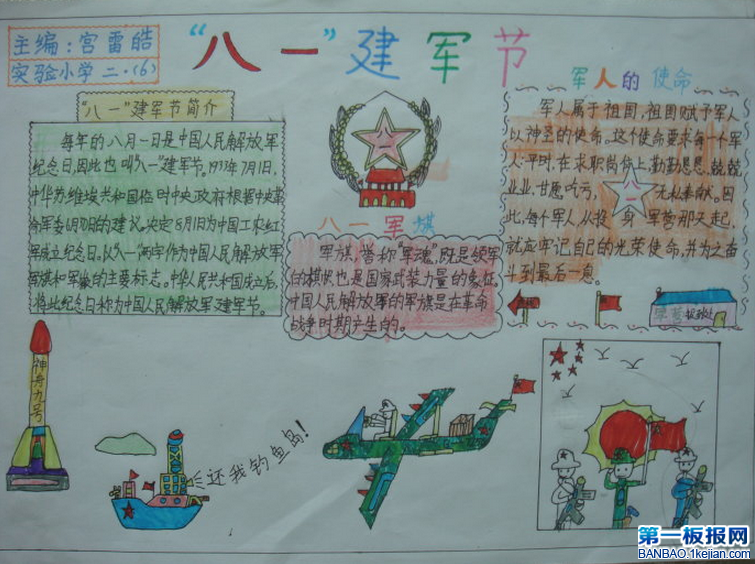 主编:宫雷皓
实验小学二·(6)
"八一"建军节
"八一"建军节简介
每年的八月一日是中国人民解放军
纪念日,因此也叫"八一"建军节。1933年7月1日,
中华苏维埃共和国临时中央政府根据中央革
命军委6月30日的建议,决定8月1日为中国工农红
军成立纪念日。以"八一"两字作为中国人民解放军
军旗和军徽的主要标志。中华人民共和国成立后,
将此纪念日称为中国人民解放军建军节。
八一
八一军旗
军旗,誉称"军魂",既是领军
的旗帜,也是国家武装力量的象征。
中国人民解放军的军旗是在革命
战争时期产生的。
军人的使命
军人属于祖国,祖国赋予军人
以神圣的使命。这个使命要求每个军
人平时,在求职岗位上,勤勤恳恳、兢兢
业业,甘愿吃亏,无私奉献。因
此,每个军人从投身军营那天起,
就应牢记自己的光荣使命,并为之奋
斗到最后一息。
八一
神舟九号
还我钓鱼岛!
第一板报网
BANBAO.1kejian.com